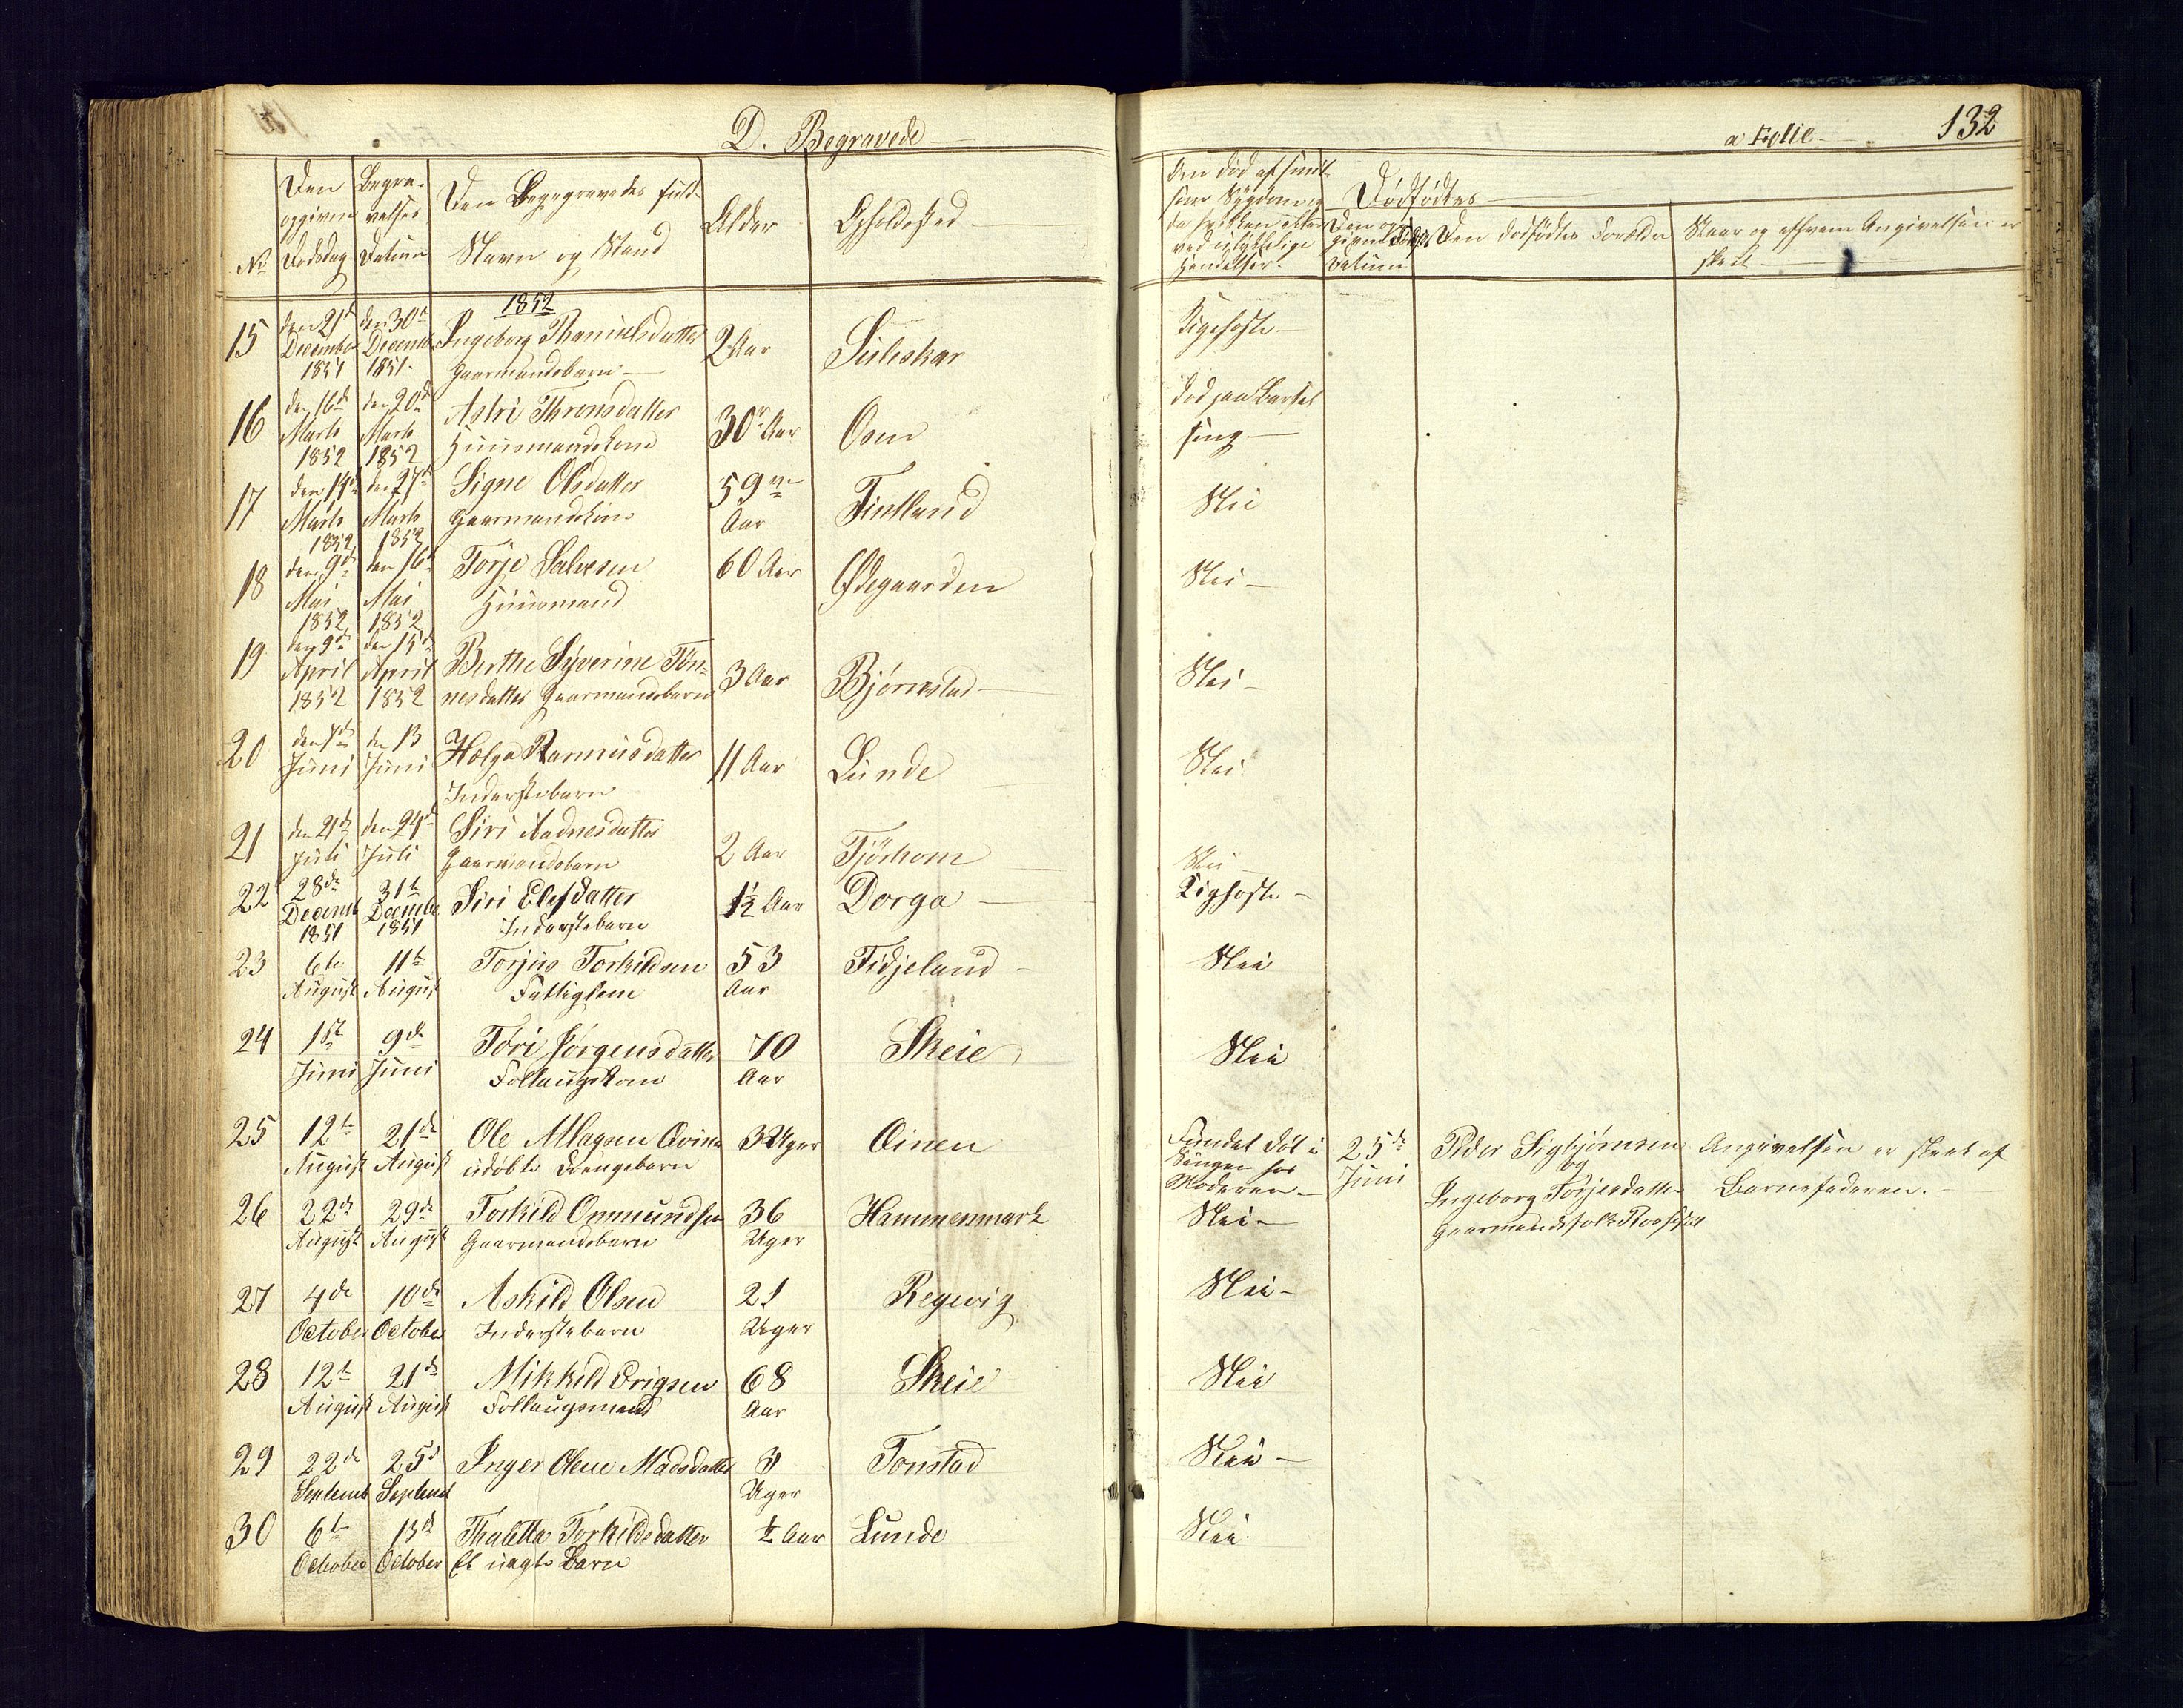 D. Begravede
a Folie
132
No
Den opgivne Dødsdag
Begravelses Datum
Den Begegravedes fulde Navn og Stand
Alder
Opholdssted
Den død af smitsom Sygdom og da hvilken eller ved ulykkelige Hendelser.
Dødfødtes
Den opgivne Føds Datum
Den dødfødtes Forældre
Naar og af hvem Angivelsen er skeet
1852
15 den 21de December 1851 den 30te December 1851. Ingeborg Danielsdatter Gaarmandsbarn 2 Aar Suleskar Kighoste
16 den 16de Marts 1852 den 20de Marts 1852 Astri Thronsdatter Huusmandskone 30 Aar Osen død paa Barsel seng
17 den 14de Marts 1852 den 27de Marts 1852 Signe Olsdatter Gaarmandskone 59 Aar Fintland Nei
18 den 9de Mai 1852 den 16de Mai 1852 Torje Salvesen Huusmand 60 Aar Ødegaarden Nei
19 den 9de April 1852 den 15de April 1852 Berthe Syverine Tønnesdatter Gaarmandsbarn 3 Aar Bjørnestad Nei
20 den 7de Juni den 13 Juni Hælga Rasmusdatter Inderstebarn 11 Aar Lunde Nei
21 den 21de Juli den 24de Juli Siri Aadnesdatter Gaarmandsbarn 2 Aar Tjørhom Nei
22 28de Decemb 1851 31te Decembe 1851 Siri Elefsdatter Inderstebarn 1½ Aar Dorga Kighoste
23 6te August 11te August Torjus Torkildsen Fattiglem 53 Aar Fidjeland Nei
24 1ste Juni 9de Juni Tori Jørgensdatter Follaugskone 70 Aar Skeie Nei
25 12te August 21de August Ole udøbte Drengebarn 3 Uger Qvinen Fundet død i Sengen hos Moderen 25de Juni Peder Sigbjørnsen og Ingeborg Torjesdatter Gaarmandsfolk Angivelsen er skeet af Barnefaderen.
26 22de August 29de August Torkild Ommundsen Gaarmandsbarn 36 Uger Hammenmark Nei
27 4de October 10de October Askild Olsen Inderstebarn 21 Uger Regevig Nei
28 12te August 21de August Mikkild Erigsen Follaugsmand 68 Aar Skeie Nei
29 22de Septemb 25de Septemb Inger Olene Madsdatter 3 Uger Tonstad Nei
30 6te October 13de October Thaletta Torkildsdatter Et uægte Barn ½ Aar Lunde Nei